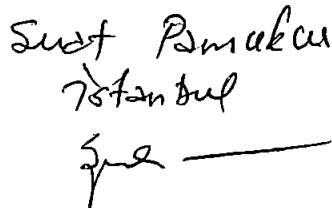 Suat Pamukcu
İstanbul